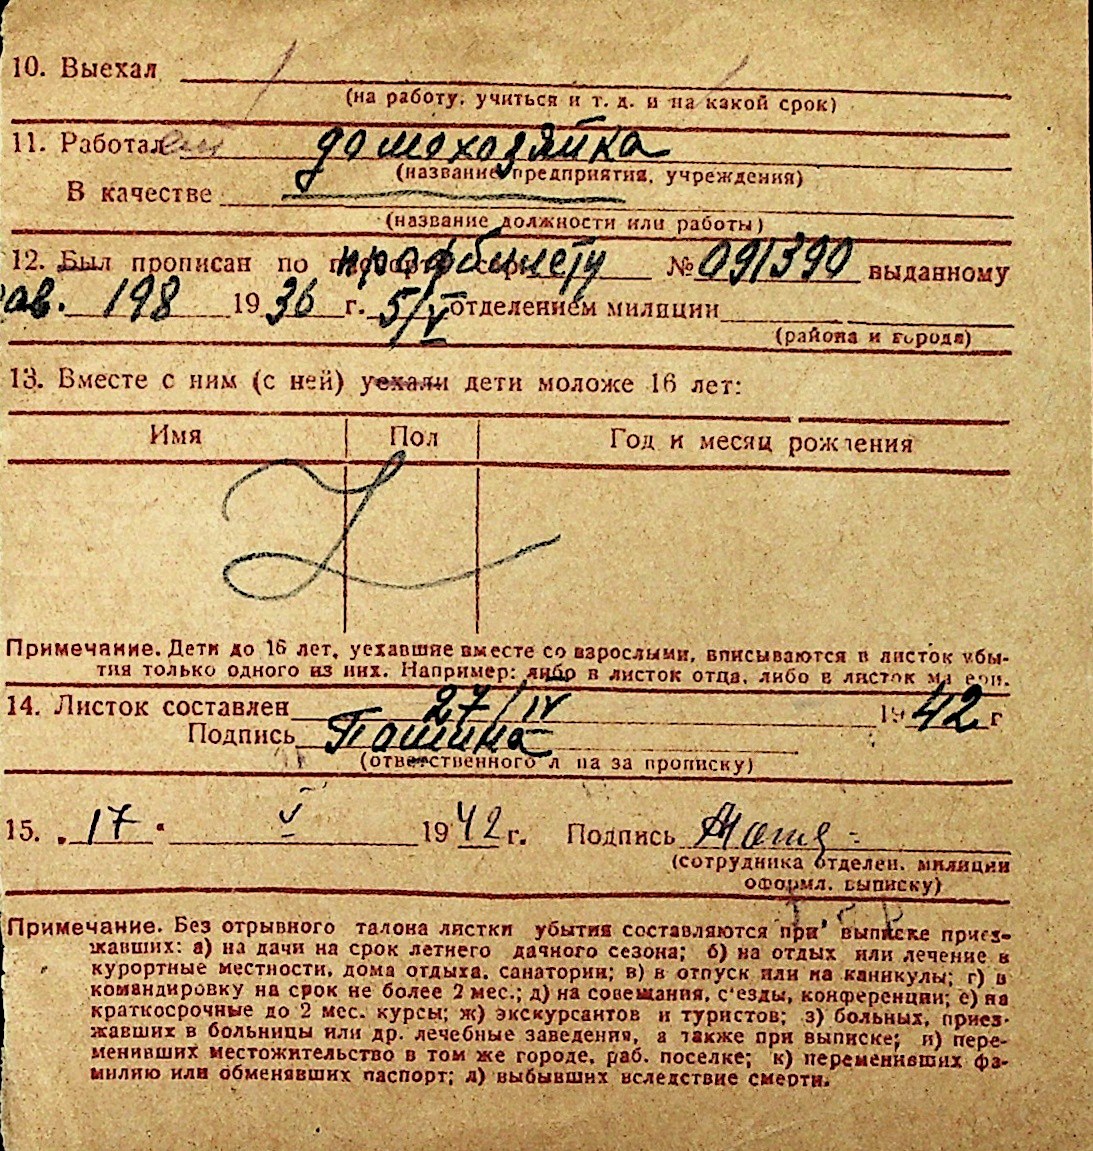 10. Выехал
(на работу, учиться и т. д. и на какой срок)
11. Работал домохозяйка
(название предприятия, учреждения)
В качестве
(название должности или работы)
12. Был прописан по профбилету № 091390 выданному
198 1936 г. 5/V отделением милиции
(района и города)
13. Вместе с ним (с ней) уехали дети моложе 16 лет:
Имя Пол Год и месяц рождения
Примечание. Дети до 16 лет, уехавшие вместе со взрослыми, вписываются в листок убы-
тия только одного из них. Например: либо в листок отца, либо в листок матери.
14. Листок составлен 27/IV 1942 г
Подпись Пашина
(ответственного лица за прописку)
15. „17" V 1942 г. Подпись
(сотрудника отделен. милиции
оформл. выписку)
Примечание. Без отрывного талона листки убытия составляются при выписке приез-
жавших: а) на дачи на срок летнего дачного сезона; б) на отдых или лечение в
курортные местности, дома отдыха, санатории; в) в отпуск или на каникулы; г) в
командировку на срок не более 2 мес.; д) на совещания, с'езды, конференции; е) на
краткосрочные до 2 мес. курсы; ж) экскурсантов и туристов; з) больных, приез-
жавших в больницы или др. лечебные заведения, а также при выписке; и) пере-
менивших местожительство в том же городе, раб. поселке; к) переменивших фа-
милию или обменявших паспорт; л) выбывших вследствие смерти.